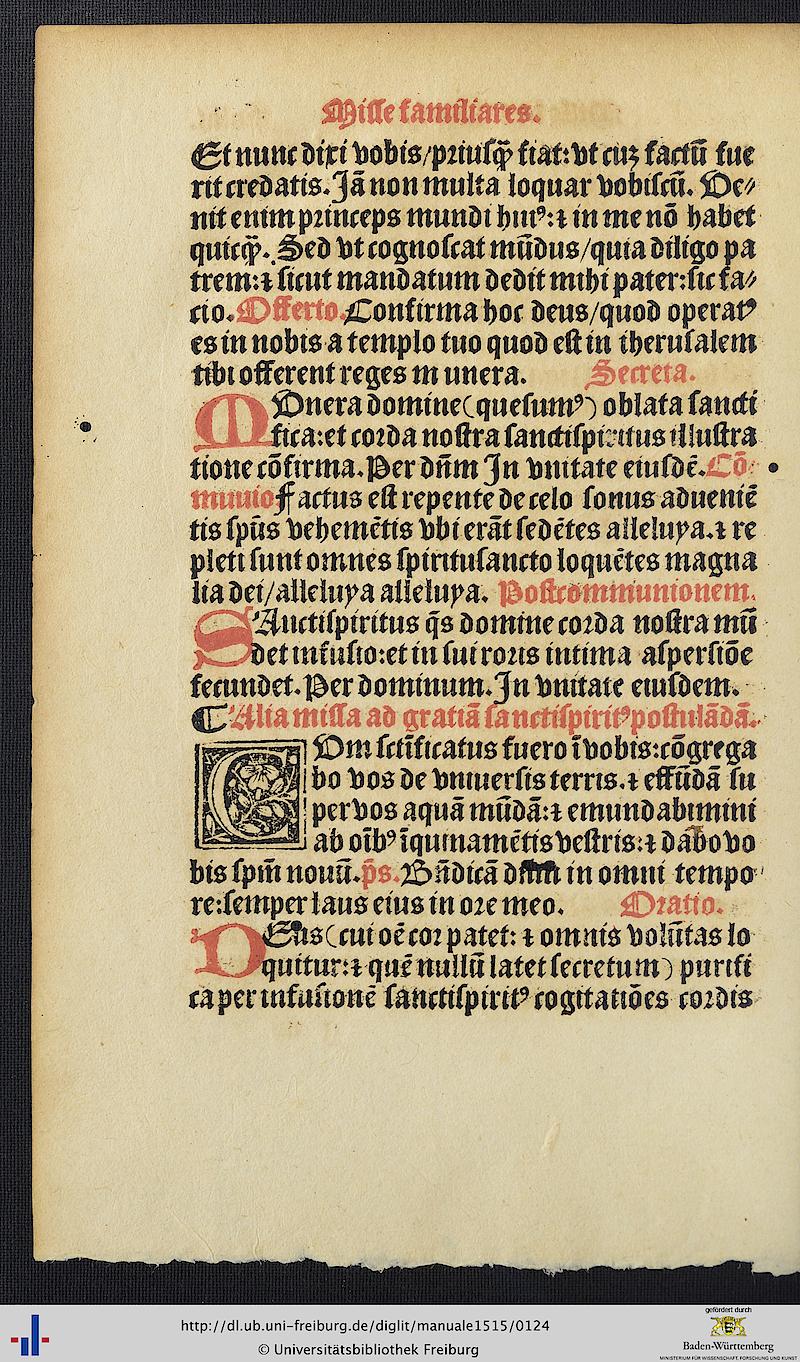 Misse familiares.
Et nunc dixi vobis/priusq̃ fiat: vt cuꝫ factũ fue
rit credatis. Jã non multa loquar vobiscũ. Ve⸗
nit enim princeps mundi huiꝰ: ⁊ in me nõ habet
quicq̃. Sed vt cognoscat mũdus/quia diligo pa
trem: ⁊ sicut mandatum dedit mihi pater: sic fa⸗
cio. Offerto. Confirma hoc deus/quod operatꝰ
es in nobis a templo tuo quod est in iherusalem
tibi offerent reges m unera. Secreta.
MVnera domine (quesumꝰ) oblata sancti
fica: et corda nostra sanctispiritus illustra
tione cõfirma. Per dñm In vnitate eiusdẽ. Cõ⸗
munio Factus est repente de celo sonus adueniẽ
tis spũs vehemẽtis vbi erãt sedẽtes alleluya. ⁊ re
pleti sunt omnes spiritusancto loquẽtes magna
lia dei/alleluya alleluya. Postcommunionem.
SAnctispiritus q̃s domine corda nostra mũ
det infusio: et in sui roris intima aspersiõe
fecundet. Per dominum. In vnitate eiusdem.
¶ Alia missa ad gratiã sanctispiritꝰ postulãdã.
CVm sctĩficatus fuero ĩ vobis: cõgrega
bo vos de vniuersis terris. ⁊ effũdã su
per vos aquã mũdã: ⁊ emundabimini
ab oĩbꝰ ĩquinamẽtis vestris: ⁊ dabo vo
bis spm̃ nouũ. p̃s. Bñdicã in omni tempo
re: semper laus eius in ore meo. Oratio.
DEus (cui oẽ cor patet: ⁊ omnis volũtas lo
quitur: ⁊ quẽ nullũ latet secretum) purifi
ca per infusionẽ sanctispiritꝰ cogitatiões cordis
http://dl.ub.uni-freiburg.de/diglit/manuale1515/0124
© Universitätsbibliothek Freiburg
gefördert durch
Baden-Württemberg
MINISTERIUM FÜR WISSENSCHAFT, FORSCHUNG UND KUNST